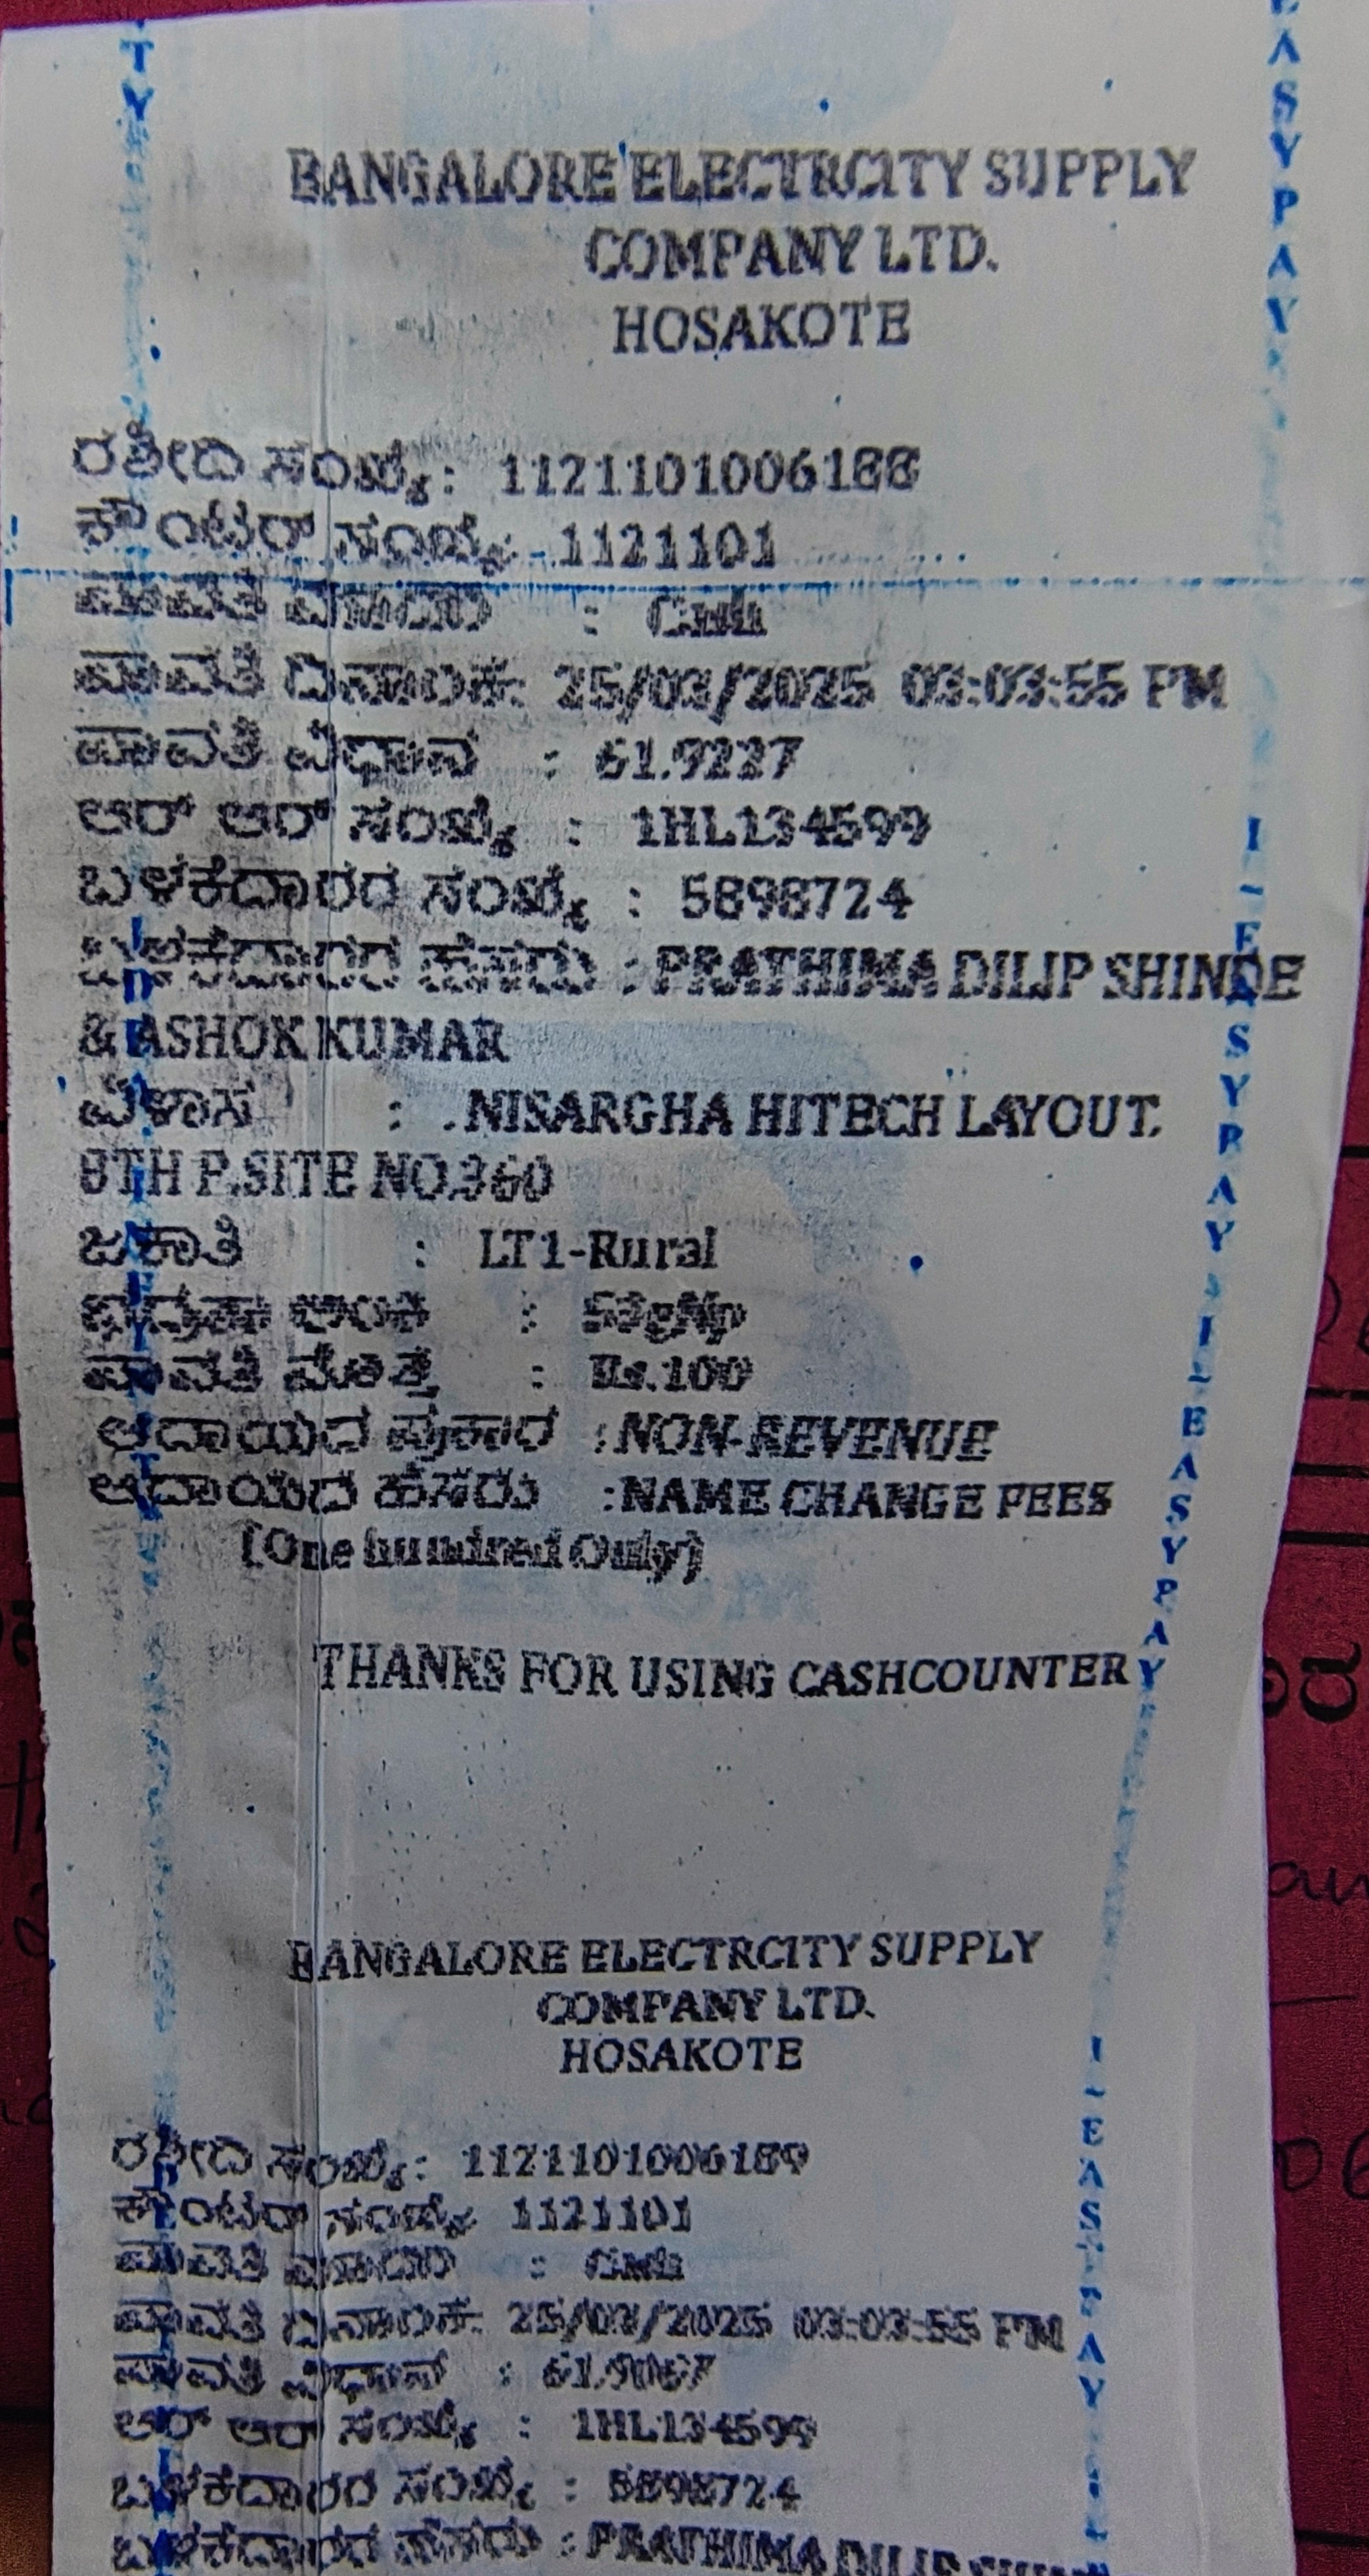 BANGALORE ELECTRCITY SUPPLY
COMPANY LTD.
HOSAKOTE
ರಶೀದಿ ಸಂಖ್ಯೆ : 1121101006188
ಕೌಂಟರ್ ಸಂಖ್ಯೆ : 1121101
ಪಾವತಿ ವಿಧಾನ : Cash
ಪಾವತಿ ದಿನಾಂಕ: 25/03/2025 03:03:55 PM
ಪಾವತಿ ವಿಧಾನ : 61.9227
ಆರ್ ಆರ್ ಸಂಖ್ಯೆ : 1HL134599
ಬಳಕೆದಾರರ ಸಂಖ್ಯೆ : 5898724
ಬಳಕೆದಾರರ ಹೆಸರು : PRATHIMA DILIP SHINDE
& ASHOK KUMAR
ವಿಳಾಸ : .NISARGHA HITECH LAYOUT.
8TH P.SITE NO.360
ಜಕಾತಿ : LT1-Rural
:
ಪಾವತಿ ಮೊತ್ತ : Rs.100
ಆದಾಯದ ಪ್ರಕಾರ : NON-REVENUE
ಆದಾಯದ ಹೆಸರು : NAME CHANGE FEES
(One hundred Only)
THANKS FOR USING CASHCOUNTER
BANGALORE ELECTRCITY SUPPLY
COMPANY LTD.
HOSAKOTE
ರಶೀದಿ ಸಂಖ್ಯೆ : 1121101006189
ಕೌಂಟರ್ ಸಂಖ್ಯೆ 1121101
ಪಾವತಿ ವಿಧಾನ : Cash
ಪಾವತಿ ದಿನಾಂಕ: 25/03/2025 03:03:55 PM
ಪಾವತಿ ವಿಧಾನ :
ಆರ್ ಆರ್ ಸಂಖ್ಯೆ : 1HL134599
ಬಳಕೆದಾರರ ಸಂಖ್ಯೆ : 5898724
ಬಳಕೆದಾರರ ಹೆಸರು : PRATHIMA DILIP
I-EASYPAY
I-EASYPAY
I-EASYPAY